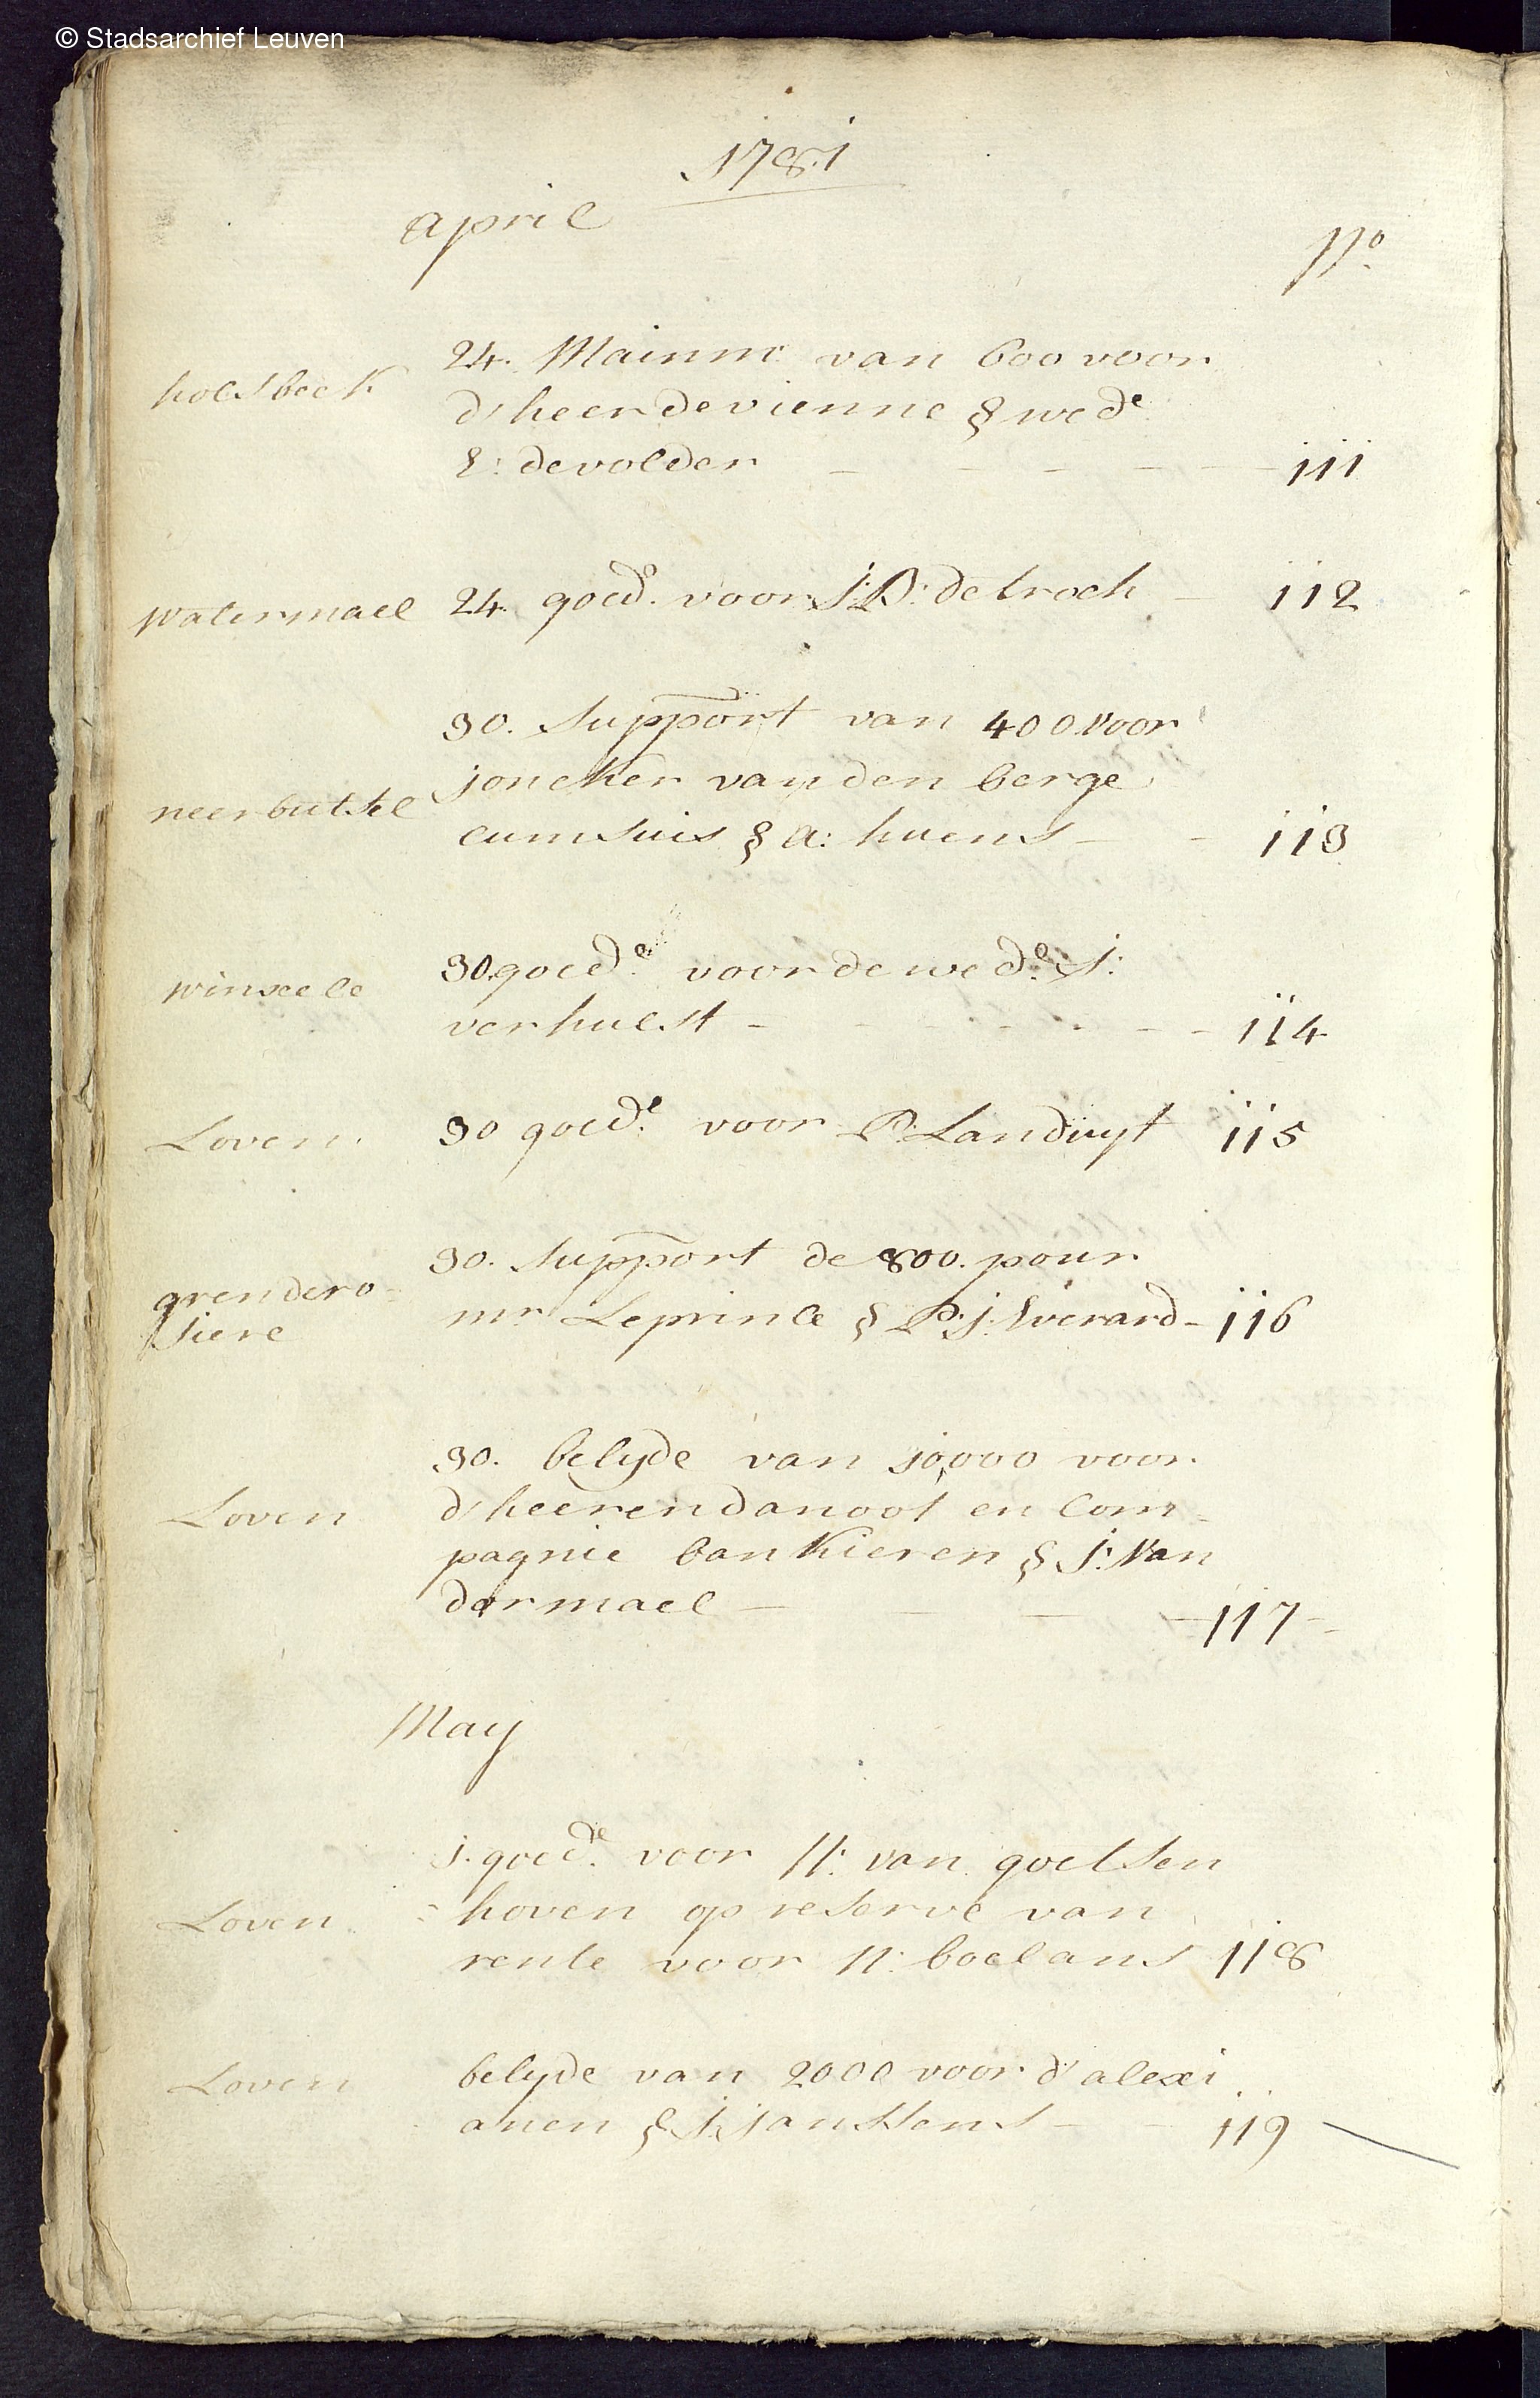 © Stadsarchief Leuven
1781
april
No.
24. Mainm: van 600 voor
holsbeek
d'heer devienne § wede
E: devolder - - - - - 111
watermael 24. goede. voor J: B: detroch - 112
30. Support van 400 voor
joncker vanden berge
neerbutsel
cum suis § a: huens - - 113
30. goede. voor de wede. J:
winxeele
verhulst - - - - - - 114
Loven. 30 goede. voor P: Landuyt 115
30. Support de 800. pour
grendero=
mr Leprince § P: J: Everard - 116
siere
30. belyde van 10,000 voor
Loven d'heeren danoot en Com=
pagnie bankieren § J: Van
dormael - - - - 117 -
May
1. goede. voor N: van goetsen
Loven =hoven op reserve van
rente voor N: boelans 118
Loven belyde van 2000 voor d'alexi
anen § J: janssens - - 119